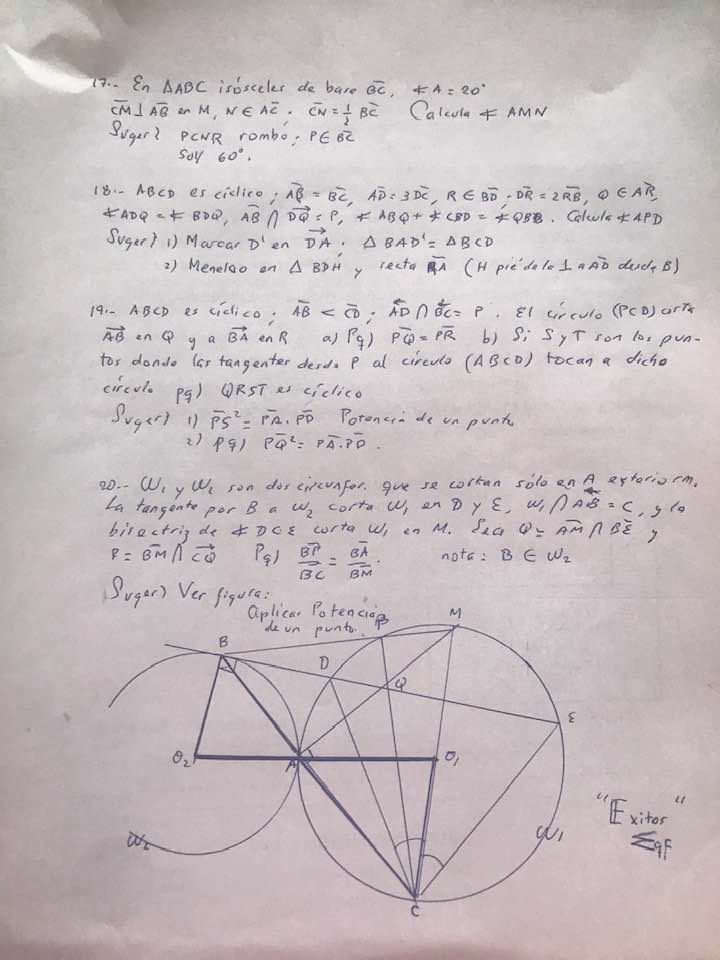 17.- En △ABC isósceles de base B̅C̅, ∢A = 20°
C̅M̅ ⊥ A̅B̅ en M, N ∈ A̅C̅ · C̅N̅ = ½ B̅C̅ Calcula ∢ AMN
Suger) PCNR rombo; P ∈ B̅C̅
SOY 60°.
18.- ABCD es cíclico; A̅B̅ = B̅C̅, A̅D̅ = 3D̅C̅, R ∈ B̅D̅ · D̅R̅ = 2R̅B̅, Q ∈ A̅R̅,
∢ADQ = ∢BDQ, A̅B̅ ⋂ DQ→ = P, ∢ABQ + ∢CBD = ∢QBD. Calcula ∢APD
Suger) 1) Marcar D' en DA→ · △BAD' = △BCD
2) Menelao en △BDH y recta RA (H pié de la ⊥ a A̅D̅ desde B)
19.- ABCD es cíclico; A̅B̅ < C̅D̅; AD ⋂ BC = P. El círculo (PCD) corta
AB→ en Q y a BA→ en R a) Pq) P̅Q̅ = P̅R̅ b) Si S y T son los pun-
tos donde las tangentes desde P al círculo (ABCD) tocan a dicho
círculo pq) QRST es cíclico
Suger) 1) P̅S̅² = P̅A̅·P̅D̅ Potencia de un punto
2) pq) P̅Q̅² = P̅A̅·P̅D̅.
20.- W₁ y W₂ son dos circunfer. que se cortan sólo en A exteriorm.
La tangente por B a W₂ corta W₁ en D y E, W₁ ⋂ AB = C, y la
bisectriz de ∢DCE corta W₁ en M. Sea Q = A̅M̅ ⋂ B̅E̅ y
P = B̅M̅ ⋂ CQ→ Pq) B̅P̅/B̅C̅ = B̅A̅/B̅M̅. nota: B ∈ W₂
Suger) Ver figura:
Aplicar Potencia
de un punto.
P
M
B
D
Q
E
O₂
A
O₁
W₂
W₁
C
"Exitos"
Σqf